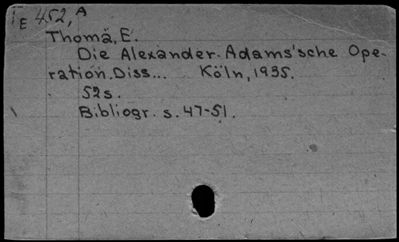 E 452, A
Thomä, E.
Die Alexander-Adams'sche Ope-
ration. Diss... Köln, 1935.
52s.
Bibliogr. s. 47-51.